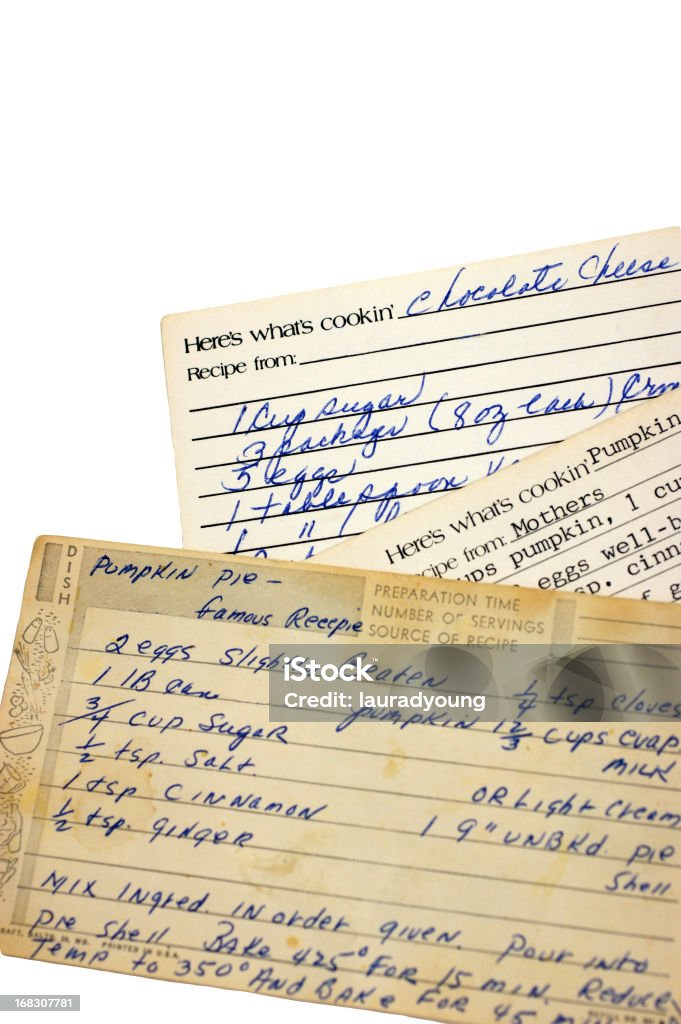 Here's what's cookin' Chocolate Cheese
Recipe from:
1 Cup sugar
3 packages (8 oz each)
5 eggs
1 tablespoon
1 "
Here's what's cookin' Pumpkin
cipe from: Mothers
ups pumpkin, 1 cu
eggs well-b
sp. cinn
DISH
Pumpkin pie -
famous Recepie
PREPARATION TIME
NUMBER OF SERVINGS
SOURCE OF RECIPE
2 eggs Slight Beaten
1 1B can pumpkin
3/4 cup Sugar
1/2 tsp. Salt
1 tsp Cinnamon
1/2 tsp. ginger
1/4 tsp cloves
1 2/3 cups evap
milk
OR Light Cream
1 9" UNBKd. pie
Shell
Mix Ingred. IN order given. Pour into
pie shell. BAke 425° FOR 15 min. Reduce
Temp to 350° And BAke FOR 45 min
PRINTED IN U.S.A.
iStock
Credit: lauradyoung
168307781